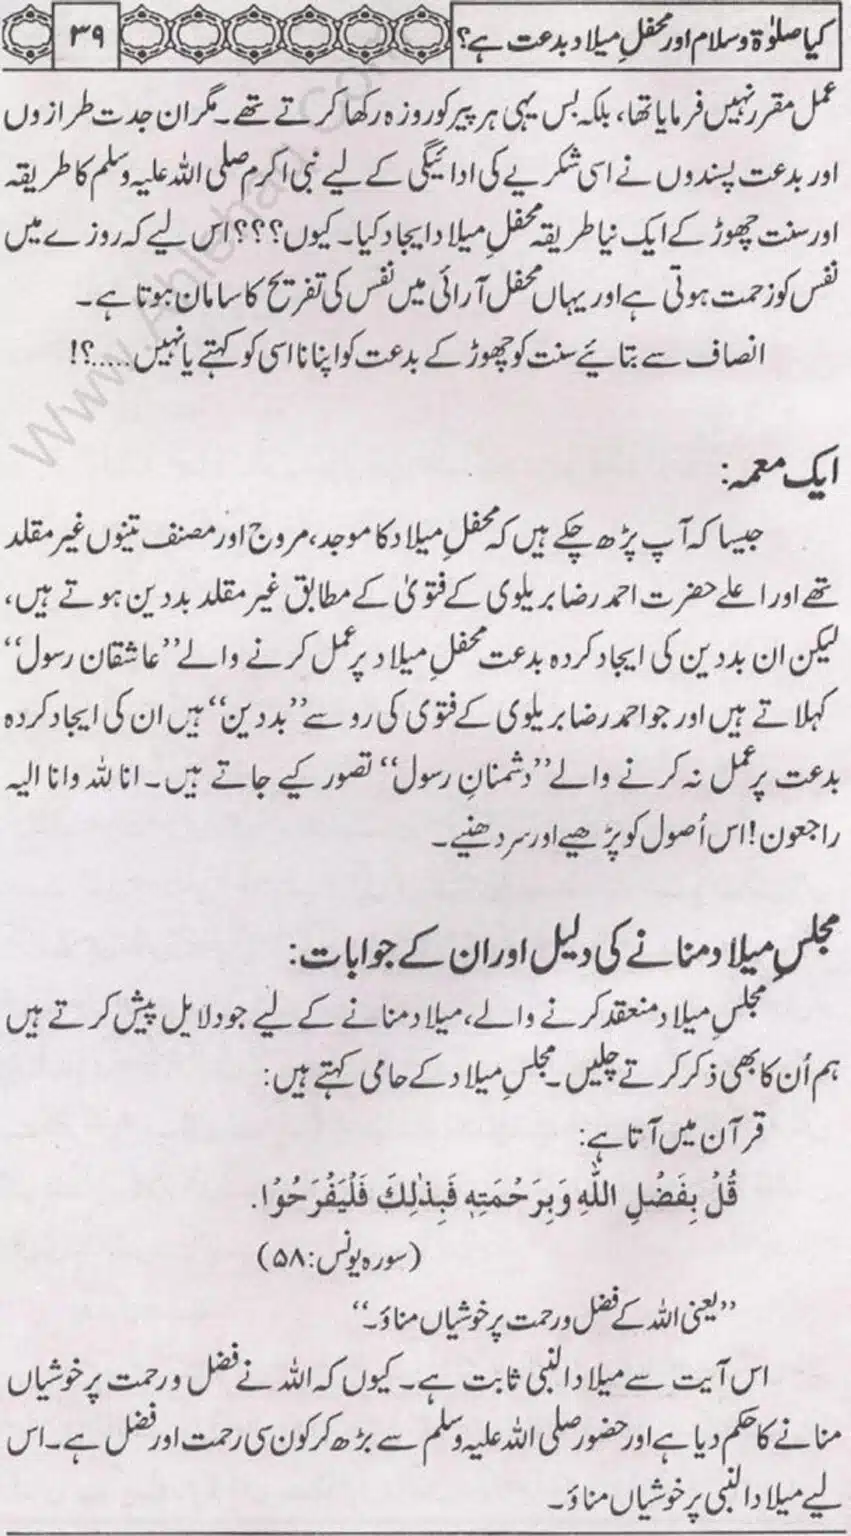 کیا صلوٰۃ وسلام اور محفلِ میلاد بدعت ہے؟
۳۹
عمل مقرر نہیں فرمایا تھا، بلکہ بس یہی ہر پیر کو روزہ رکھا کرتے تھے۔ مگر ان جدت طرازوں
اور بدعت پسندوں نے اسی شکریے کی ادائیگی کے لیے نبی اکرم صلی اللہ علیہ وسلم کا طریقہ
اور سنت چھوڑ کے ایک نیا طریقہ محفلِ میلاد ایجاد کیا۔ کیوں؟؟؟ اس لیے کہ روزے میں
نفس کو زحمت ہوتی ہے اور یہاں محفل آرائی میں نفس کی تفریح کا سامان ہوتا ہے۔
انصاف سے بتائیے سنت کو چھوڑ کے بدعت کو اپنانا اسی کو کہتے یا نہیں.....؟!
ایک معمہ:
جیسا کہ آپ پڑھ چکے ہیں کہ محفلِ میلاد کا موجد، مروج اور مصنف تینوں غیر مقلد
تھے اور اعلے حضرت احمد رضا بریلوی کے فتویٰ کے مطابق غیر مقلد بددین ہوتے ہیں،
لیکن ان بددین کی ایجاد کردہ بدعت محفلِ میلاد پر عمل کرنے والے ”عاشقان رسول“
کہلاتے ہیں اور جو احمد رضا بریلوی کے فتوی کی رو سے ”بددین“ ہیں ان کی ایجاد کردہ
بدعت پر عمل نہ کرنے والے ”دشمنانِ رسول“ تصور کیے جاتے ہیں۔ انا للہ وانا الیہ
راجعون! اس اُصول کو پڑھیے اور سر دھنیے۔
مجلسِ میلاد منانے کی دلیل اور ان کے جوابات:
مجلسِ میلاد منعقد کرنے والے، میلاد منانے کے لیے جو دلایل پیش کرتے ہیں
ہم اُن کا بھی ذکر کرتے چلیں۔ مجلسِ میلاد کے حامی کہتے ہیں:
قرآن میں آتا ہے:
قُلْ بِفَضْلِ اللّٰهِ وَبِرَحْمَتِهٖ فَبِذٰلِكَ فَلْيَفْرَحُوْا.
(سورہ یونس: ۵۸)
”یعنی اللہ کے فضل و رحمت پر خوشیاں مناؤ۔“
اس آیت سے میلاد النبی ثابت ہے۔ کیوں کہ اللہ نے فضل و رحمت پر خوشیاں
منانے کا حکم دیا ہے اور حضور صلی اللہ علیہ وسلم سے بڑھ کر کون سی رحمت اور فضل ہے۔ اس
لیے میلاد النبی پر خوشیاں مناؤ۔
www.Ahlehaq.Com